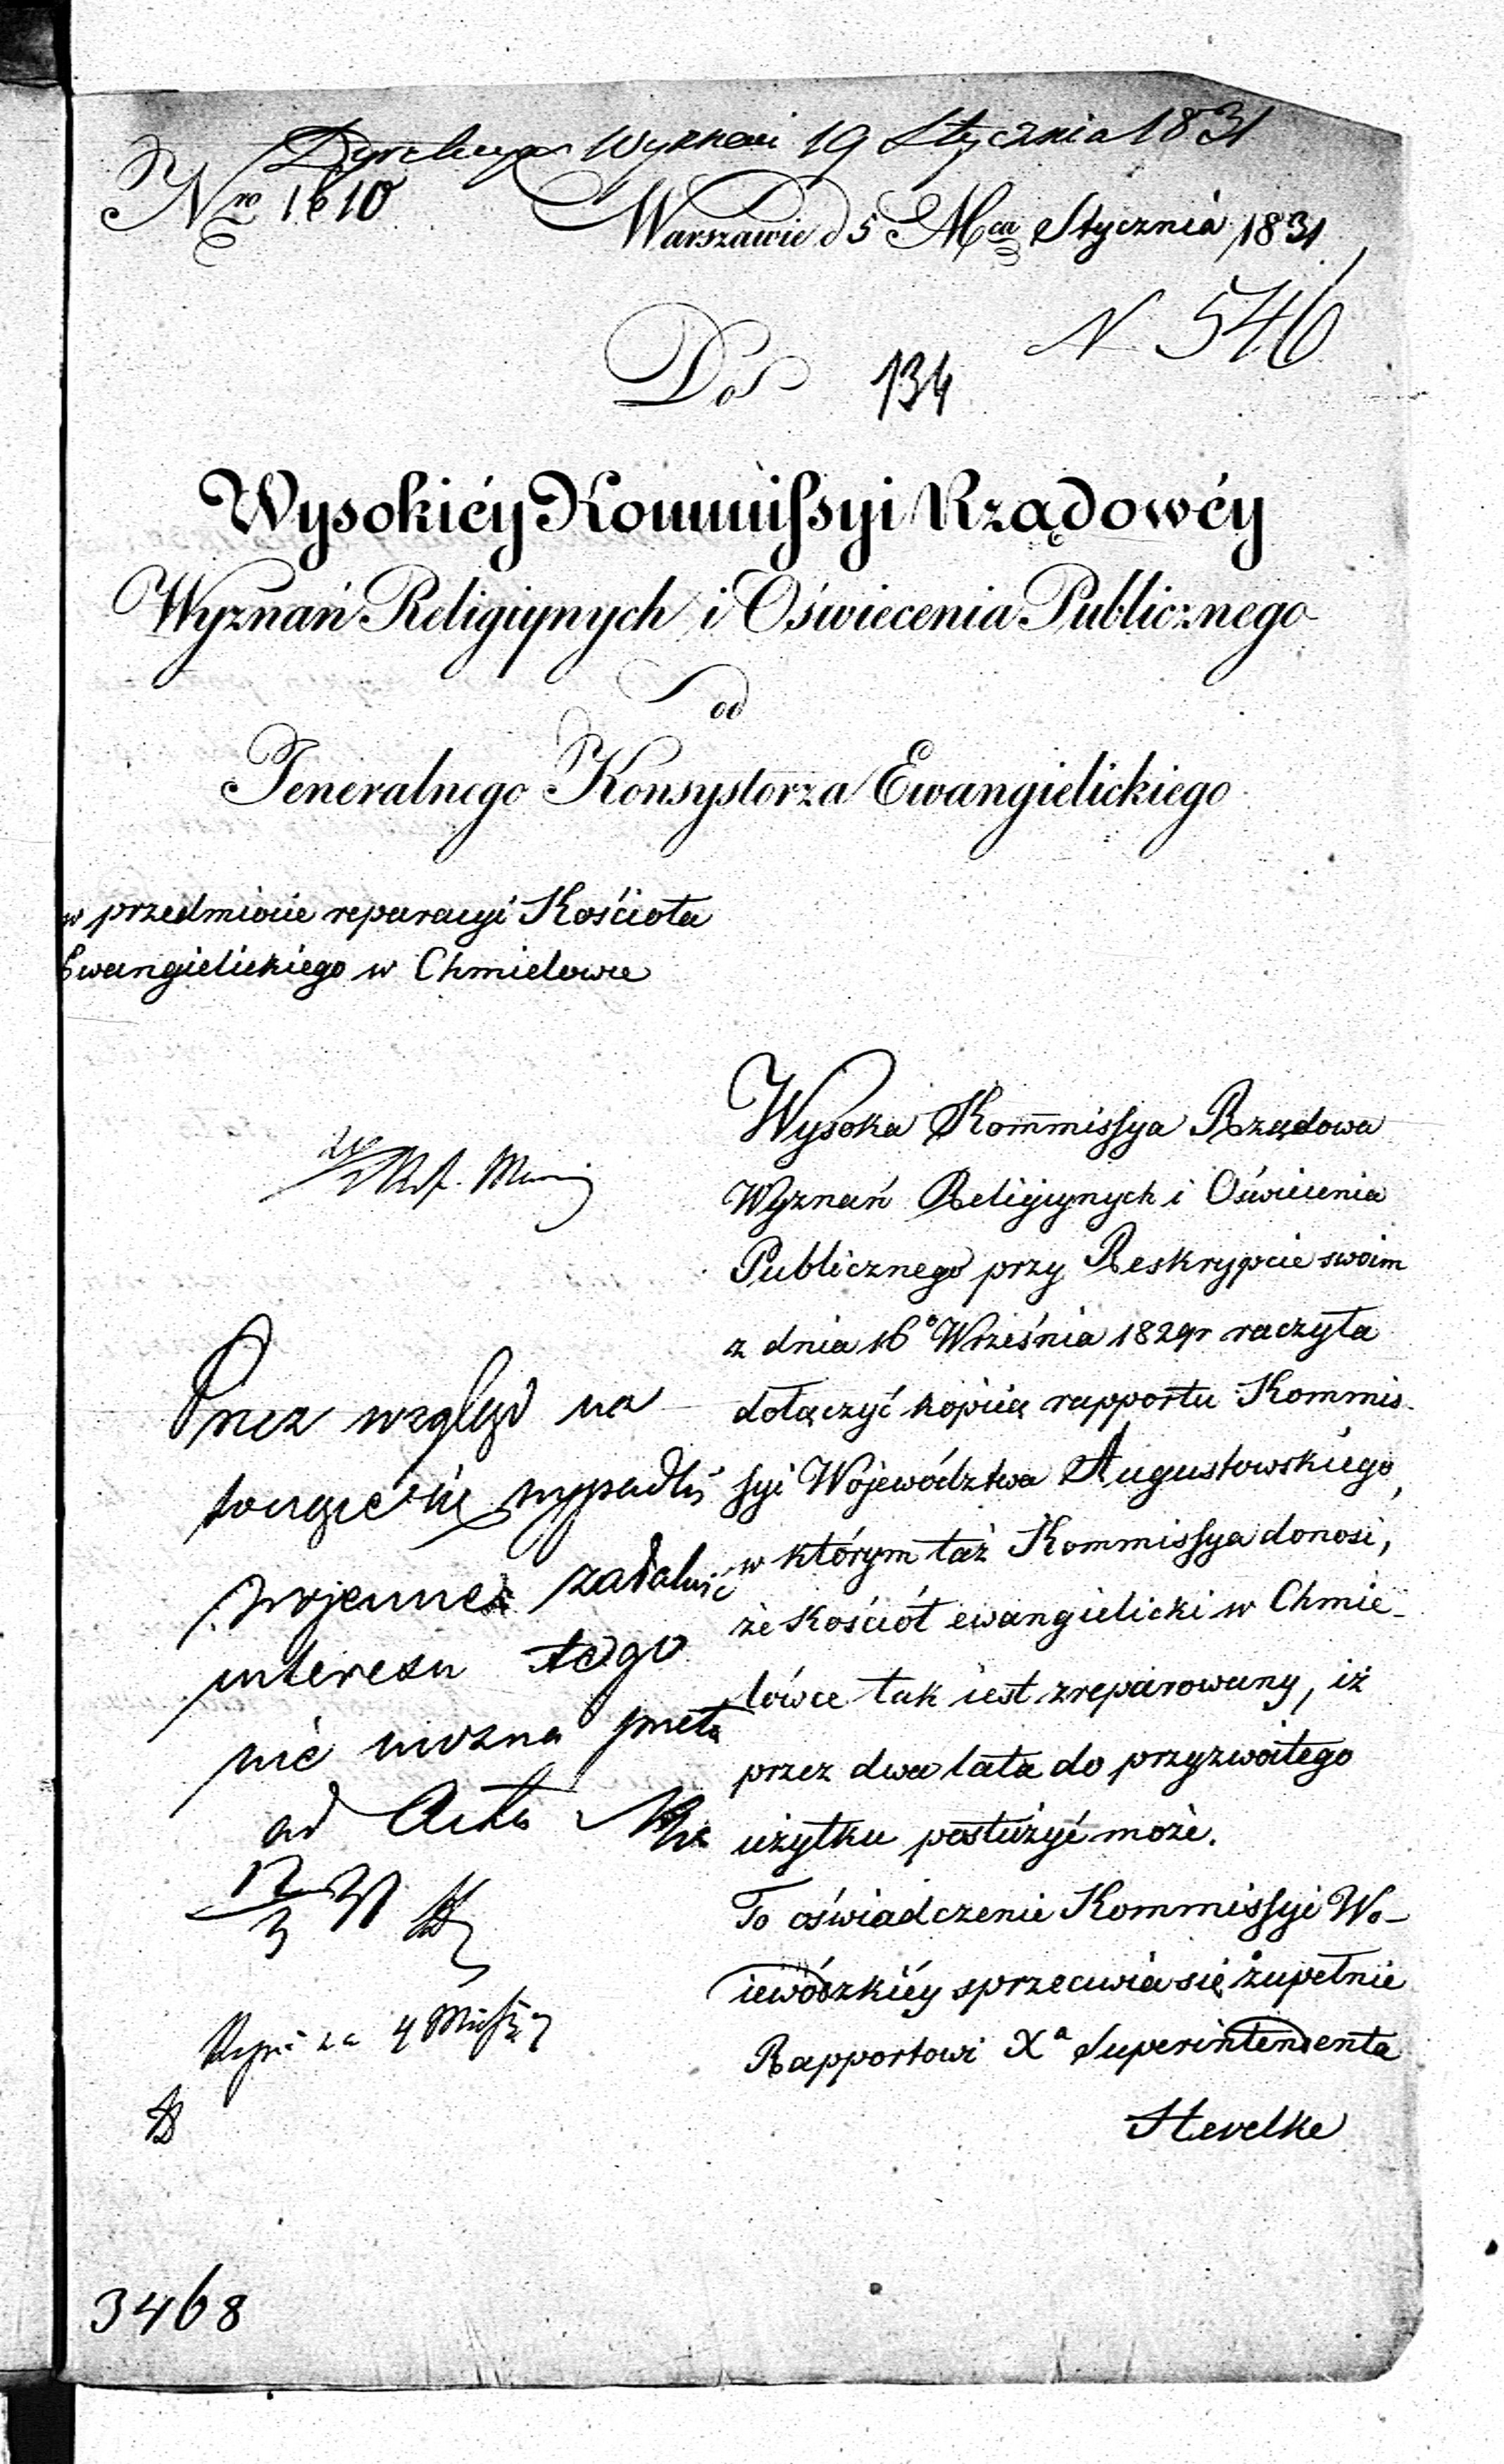 Dyrekcya Wyznań 19 Stycznia 1831
Nro 1610
Warszawie d 5 Mca Stycznia 1831
N 546
Do 134
Wysokiéy Kommissyi Rządowéy
Wyznań Religiynych i Oświecenia Publicznego
od
Jeneralnego Konsystorza Ewangielickiego
w przedmiocie reparacyi Kościoła
Ewangielickiego w Chmielowce
Wysoka Kom̄missya Rządowa
Wyznań Religiynych i Oświecenia
Publicznego przy Reskrypcie swoim
z dnia 16° Września 1829r raczyła
dołączyć kopiią rapportu Kommis-
syi Województwa Augustowskiego,
w którym taż Kommissya donosi,
że Kościół ewangielicki w Chmie-
lówce tak iest zreparowany, iż
przez dwa lata do przyzwoitego
użytku posłużyć może.
To oświadczenie Kommissyi Wo-
iewódzkiéy sprzeciwia się zupełnie
Rapportowi Xa Superintendenta
Hevelke
Przez wzgląd na
toczące się wypadki
wojenne załatwić
interesu tego
nie można
ad Acta
12/3 31
za 4
3468